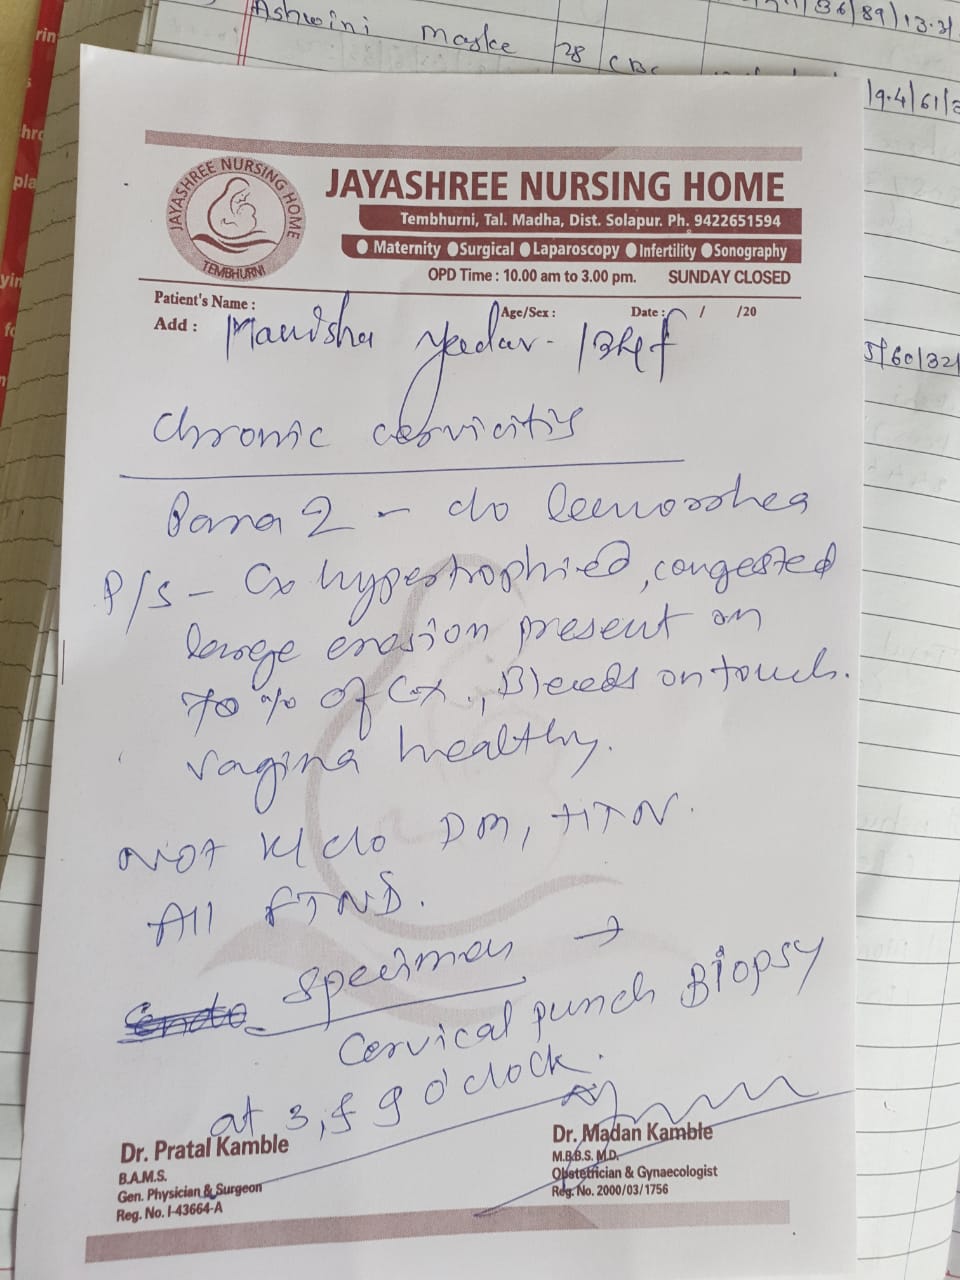 Ashwini Maske 28 CBC
/36/89/13.3/
/9.4/61/
rin
hro
pla
yin
JAYASHREE NURSING HOME
TEMBHURNI
JAYASHREE NURSING HOME
Tembhurni, Tal. Madha, Dist. Solapur. Ph. 9422651594
Maternity Surgical Laparoscopy Infertility Sonography
OPD Time : 10.00 am to 3.00 pm. SUNDAY CLOSED
Patient's Name : Age/Sex : Date : / /20
Add : Manisha Yadav -
/60/32/
Chronic cervicitis
Para 2 - c/o leucorrhea
P/S - Cx hypertrophied, congested
large erosion present on
70 % of Cx., Bleeds on touch.
vagina healthy.
NOT K/c/o DM, HTN.
All FTND.
Specimen →
Cervical punch Biopsy
at 3, & 9 o'clock.
Dr. Pratal Kamble
B.A.M.S.
Gen. Physician & Surgeon
Reg. No. I-43664-A
Dr. Madan Kamble
M.B.B.S. M.D.
Obstetrician & Gynaecologist
Reg. No. 2000/03/1756